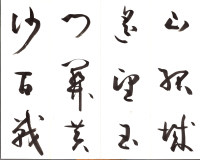 山孤城
遥望玉
门關黄
沙百戰